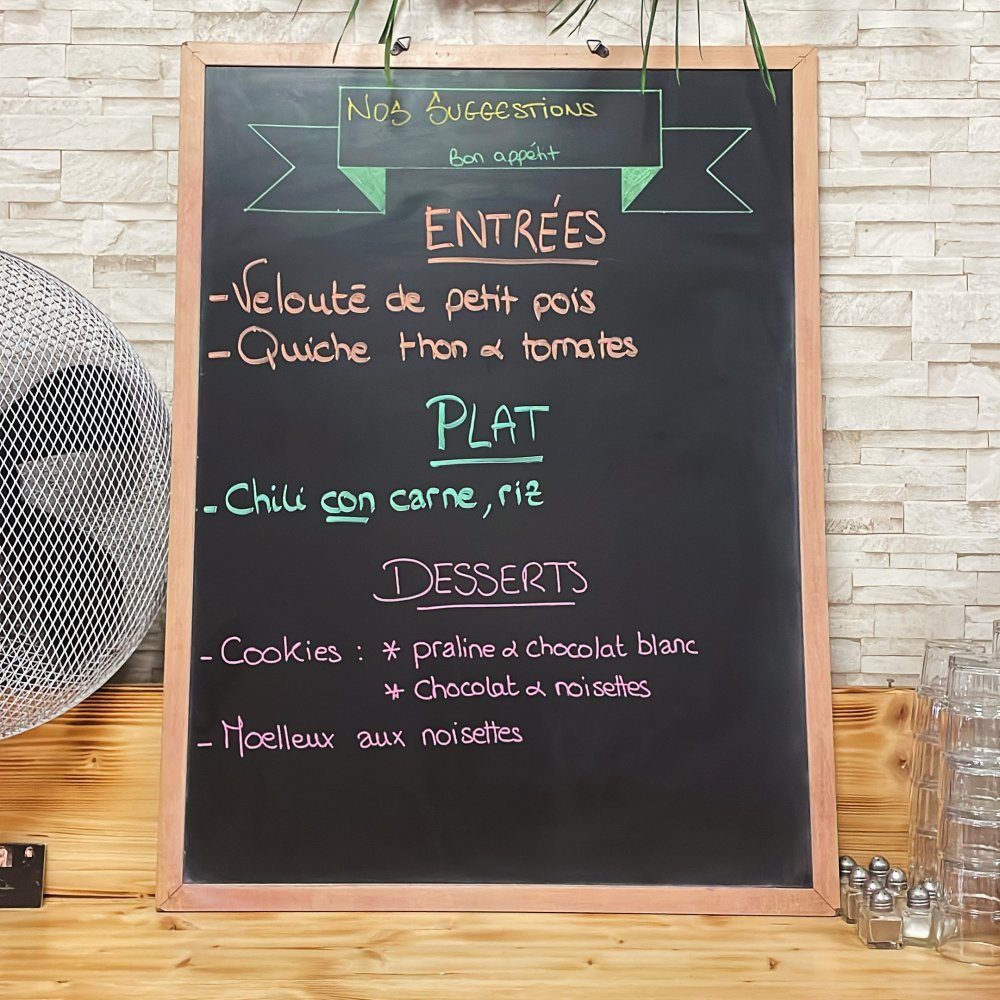 Nos Suggestions
Bon appétit
ENTRÉES
- Velouté de petit pois
- Quiche thon & tomates
PLAT
- Chili con carne, riz
DESSERTS
- Cookies : * praline & chocolat blanc
* Chocolat & noisettes
- Moelleux aux noisettes